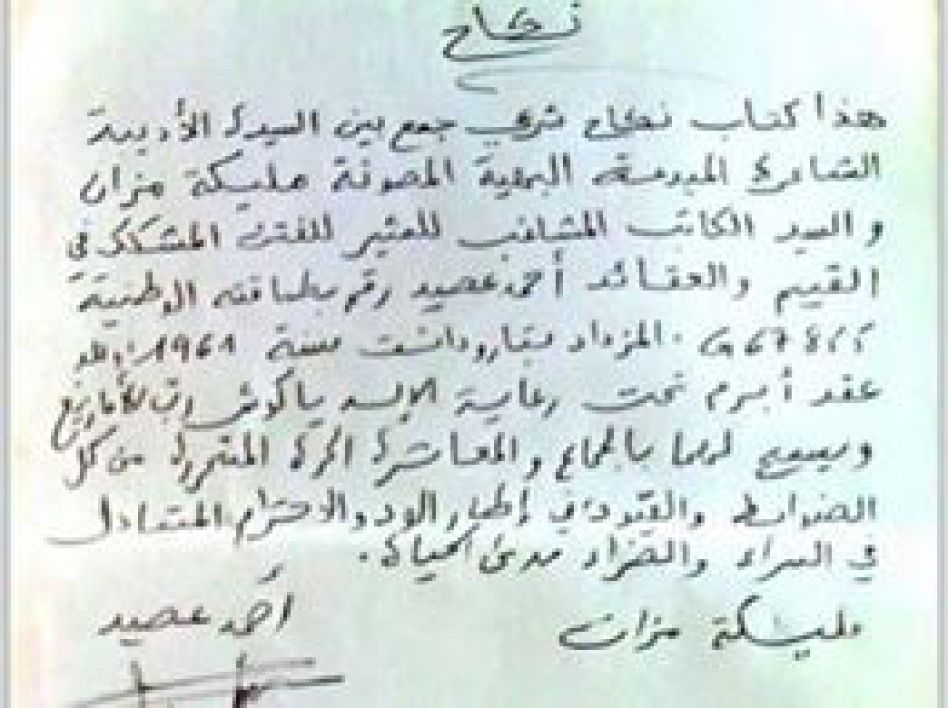 نكاح
هذا كتاب نكاح شرعي جمع بين السيدة الأديبة
الشاعرة المبدعة البهية المصونة مليكة مزان
والسيد الكاتب المشاغب المثير للفتن المشكك في
القيم والعقائد أحمد عصيد رقم بطاقته الوطنية
المزداد بتارودانت سنة 1961، وهو
عقد أبرم تحت رعاية الإله ياكوش رب الأمازيغ
ويسمح لهما بالجماع والمعاشرة الحرة المتحررة من كل
الضوابط والقيود في إطار الود والاحترام المتبادل
في السراء والضراء مدى الحياة.
مليكة مزان
أحمد عصيد